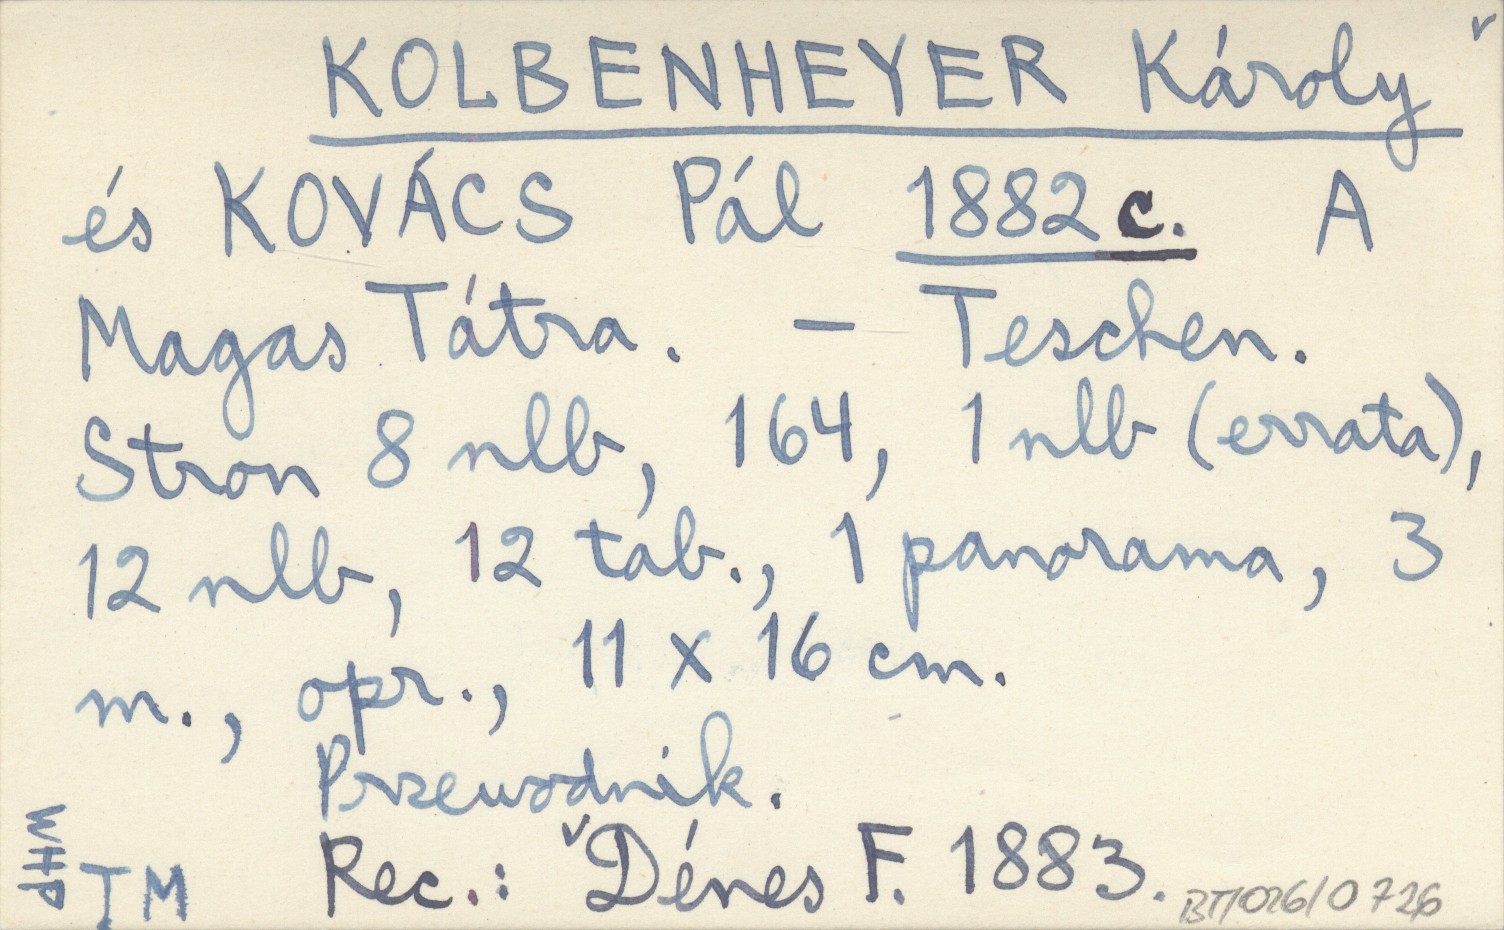 KOLBENHEYER Károly
és KOVÁCS Pál 1882c. A
Magas Tátra. – Teschen.
Stron 8 nlb, 164, 1 nlb (errata),
12 nlb, 12 tab., 1 panorama, 3
m., opr., 11 x 16 cm.
Przewodnik.
Rec.: Dénes F. 1883.
WHP
TM
BT/026/0726